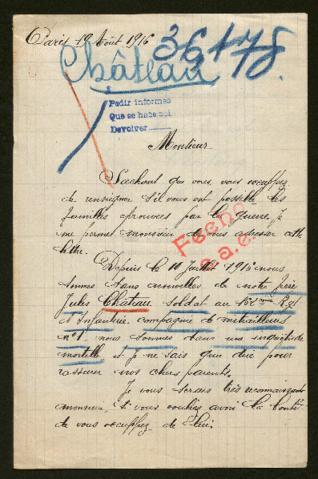 Paris 19 Août 1916
36178.
Château
Pedir informes
Que se hace así
Devolver
Monsieur
Sachant que vous vous occupez
de renseigner s'il vous est possible les
familles éprouvées par la guerre, je
me permet monsieur de vous adresser cette
lettre.
Depuis le 10 juillet 1916 nous
sommes sans nouvelles de notre frère
Jules Chateau soldat au Rgt
d'Infanterie compagnie de mitrailleuses
n°1. nous sommes dans une inquiétude
mortelle et je ne sais que dire pour
rassurer nos chers parents.
Je vous serais très reconnaissante
monsieur, si vous vouliez avoir la bonté
de vous occupez de lui.